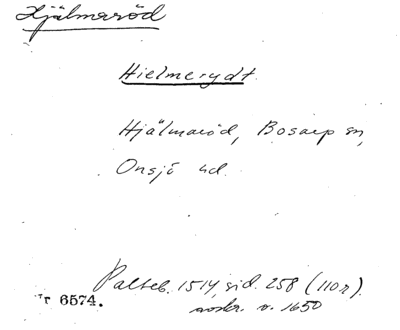 Hjälmaröd
Hielmerydt
Hjälmaröd, Bosarp sn,
Onsjö hd.
Palteb. 1514, sid. 258 (110r).
avskr. v. 1650
Nr 6574.